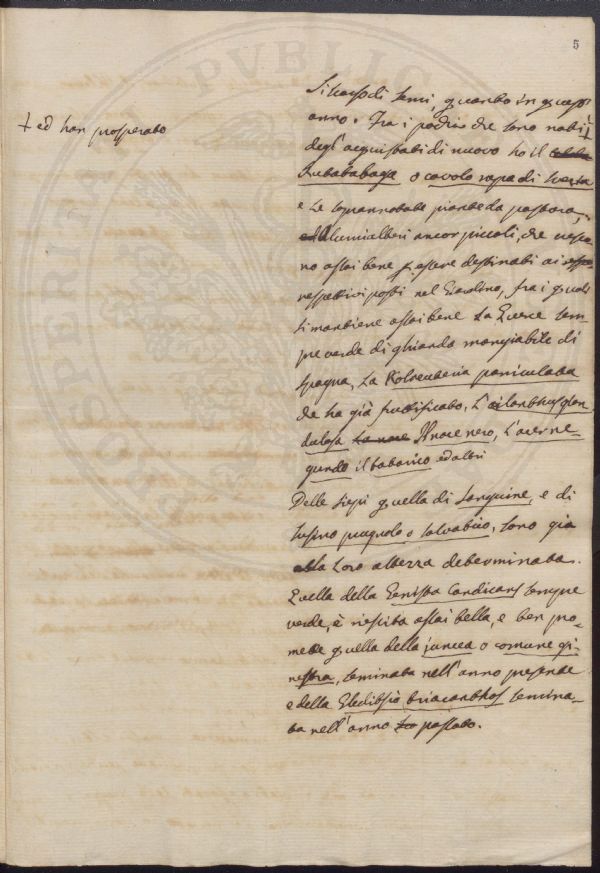 5
✝ ed han prosperato
di semi, quanto in quest'
anno. Fra i pochi che sono nati ✝
degl'acquistati di nuovo ho il
Rutababaga o cavolo rapa di Svezia
e le soprannotate piante da pastura,
ed alcuni alberi ancor piccoli, che vengo
no assai bene p. essere destinati ai
respettivi posti nel Giardino, fra i quali
si mantiene assai bene la Querce sem
pre verde di ghianda mangiabile di
Spagna, la Kolreuteria paniculata
che ha già fruttificato, L'ailanthus glan
dulosa Il noce nero, L'acer ne-
gundo il ed altri
Delle siepi quella di Sanguine, e di
Susino prugnolo o salvatico, sono già
alla loro altezza determinata.
Quella della Genista Candicans sempre
verde, è riescita assai bella, e ben pro-
mette quella della juncea o comune gi-
nestra, seminata nell'anno presente
e della Gleditsia triacanthos semina-
ta nell'anno passato.
PVBLIC
PROSPERITATI